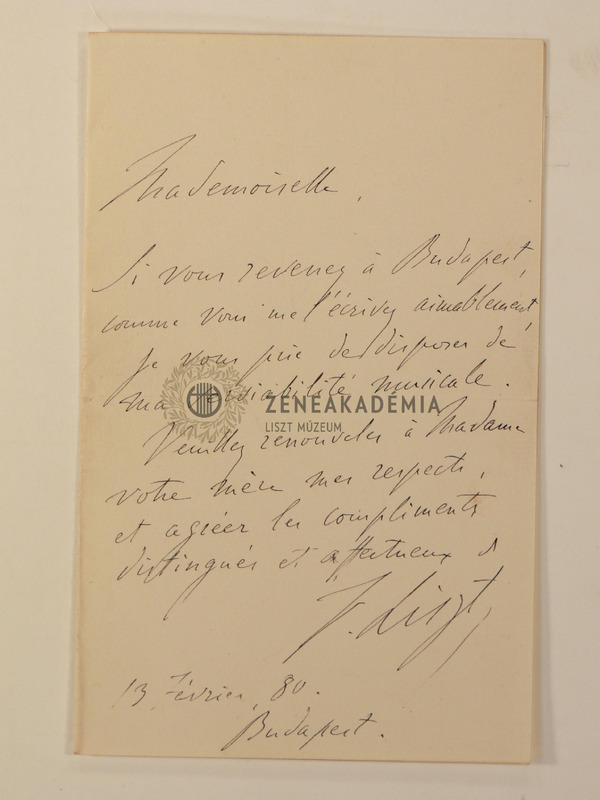 Mademoiselle,
Si vous revenez à Budapest,
comme vous me l'écrivez aimablement,
je vous prie de disposer de
ma cordiabilité musicale.
ZENEAKADÉMIA
LISZT MÚZEUM
Veuillez renouveler à Madame
votre mère mes respects,
et agréer les compliments
distingués et affectueux d
F. Liszt,
13 Février, 80.
Budapest.